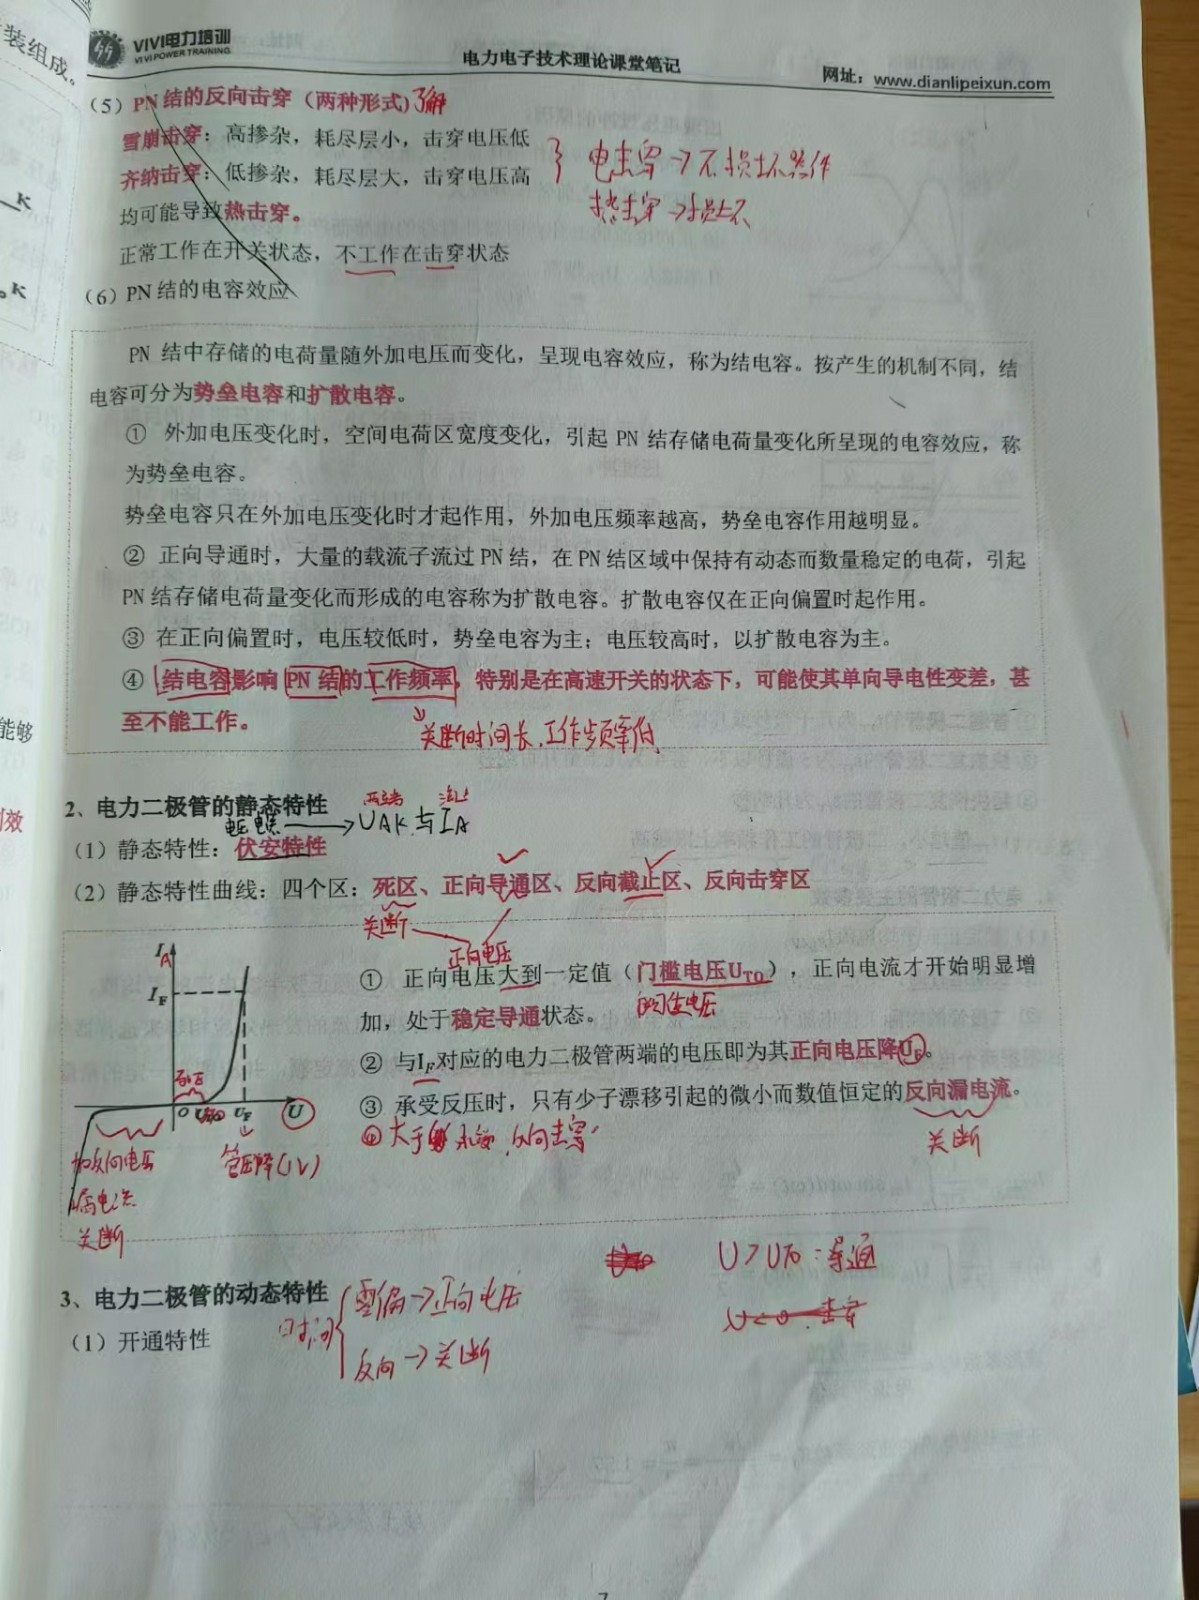 装组成。
VIVI电力培训
VIVI POWER TRAINING
电力电子技术理论课堂笔记
网址：www.dianlipeixun.com
（5）PN 结的反向击穿（两种形式）了解
雪崩击穿：高掺杂，耗尽层小，击穿电压低
齐纳击穿：低掺杂，耗尽层大，击穿电压高
电击穿→不损坏器件
热击穿→损坏
均可能导致热击穿。
正常工作在开关状态，不工作在击穿状态
（6）PN 结的电容效应
K
K
PN 结中存储的电荷量随外加电压而变化，呈现电容效应，称为结电容。按产生的机制不同，结
电容可分为势垒电容和扩散电容。
① 外加电压变化时，空间电荷区宽度变化，引起 PN 结存储电荷量变化所呈现的电容效应，称
为势垒电容。
势垒电容只在外加电压变化时才起作用，外加电压频率越高，势垒电容作用越明显。
② 正向导通时，大量的载流子流过 PN 结，在 PN 结区域中保持有动态而数量稳定的电荷，引起
PN 结存储电荷量变化而形成的电容称为扩散电容。扩散电容仅在正向偏置时起作用。
③ 在正向偏置时，电压较低时，势垒电容为主；电压较高时，以扩散电容为主。
④ 结电容影响 PN 结的工作频率，特别是在高速开关的状态下，可能使其单向导电性变差，甚
至不能工作。
关断时间长，工作频率低
能够
2、电力二极管的静态特性
电压电流→UAK与IA
两端
（1）静态特性：伏安特性
（2）静态特性曲线：四个区：死区、正向导通区、反向截止区、反向击穿区
关断
正向电压
I
A
I_F
死区
O
U_TO
U_F
U
管压降(1V)
加反向电压
漏电流
关断
① 正向电压大到一定值（门槛电压U_TO），正向电流才开始明显增
加，处于稳定导通状态。
② 与I_F对应的电力二极管两端的电压即为其正向电压降U_F。
③ 承受反压时，只有少子漂移引起的微小而数值恒定的反向漏电流。
④大于
反向击穿
关断
U>UTO：导通
3、电力二极管的动态特性
时间
零偏→正向电压
反向→关断
（1）开通特性
7